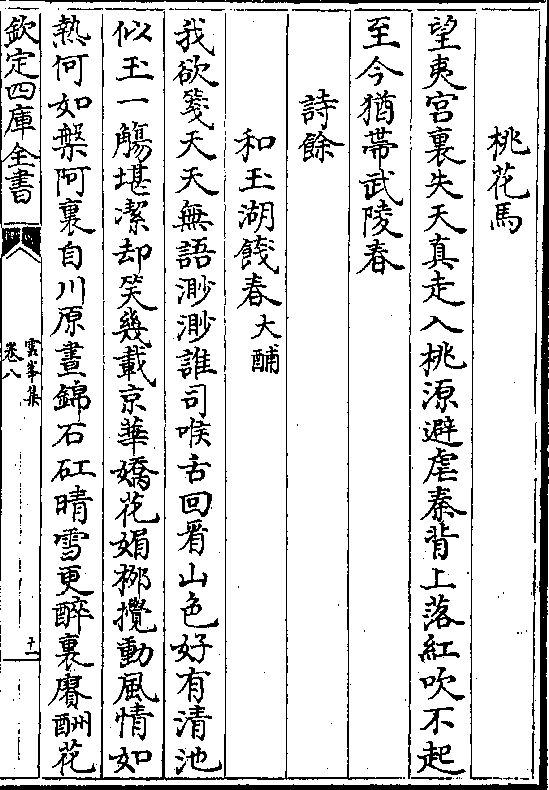 桃花馬
望夷宮裏失天真走入桃源避虐秦背上落紅吹不起
至今猶帶武陵春
詩餘
和玉湖餞春大酺
我欲箋天天無語渺渺誰司喉舌回看山色好有清池
似玉一觴堪潔却笑幾載京華嬌花媚桞攪動風情如
熱何如槃阿裏自川原晝錦石矼晴雪更醉裏賡酬花
欽定四庫全書
雲峯集
卷八
十一